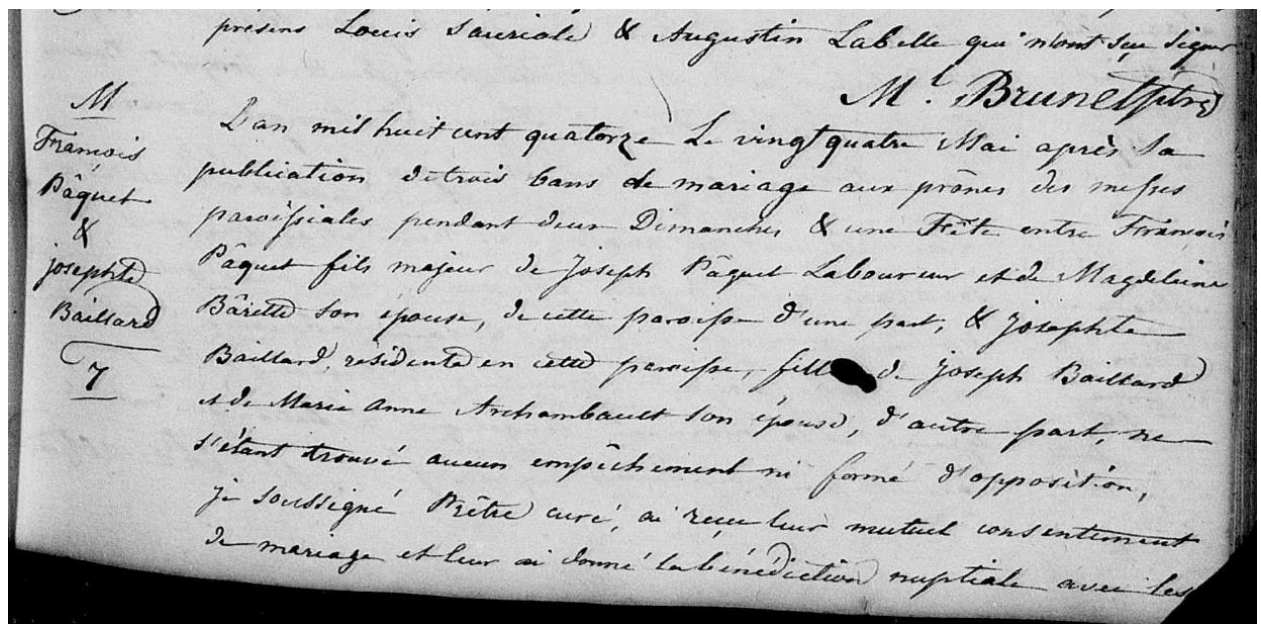 présens Louis Sauriole & Augustin Labelle qui n'ont sçu signer
M.l Brunet ptre
M
François
Pâquet
&
josephte
Baillard
7
L'an mil huit cent quatorze Le vingt quatre Mai après la
publication de trois bans de mariage aux prônes des messes
paroissiales pendant deux Dimanches & une Fête entre François
Pâquet fils majeur de Joseph Pâquet Laboureur et de Magdeleine
Bârette son épouse, de cette paroisse d'une part, & Josephte
Baillard, résidente en cette paroisse, fille de Joseph Baillard
et de Marie Anne Archambault son épouse, d'autre part, ne
s'étant trouvé aucun empêchement ni formé d'opposition,
je soussigné Prêtre curé, ai reçu leur mutuel consentement
de mariage et leur ai donné la bénédiction nuptiale avec les